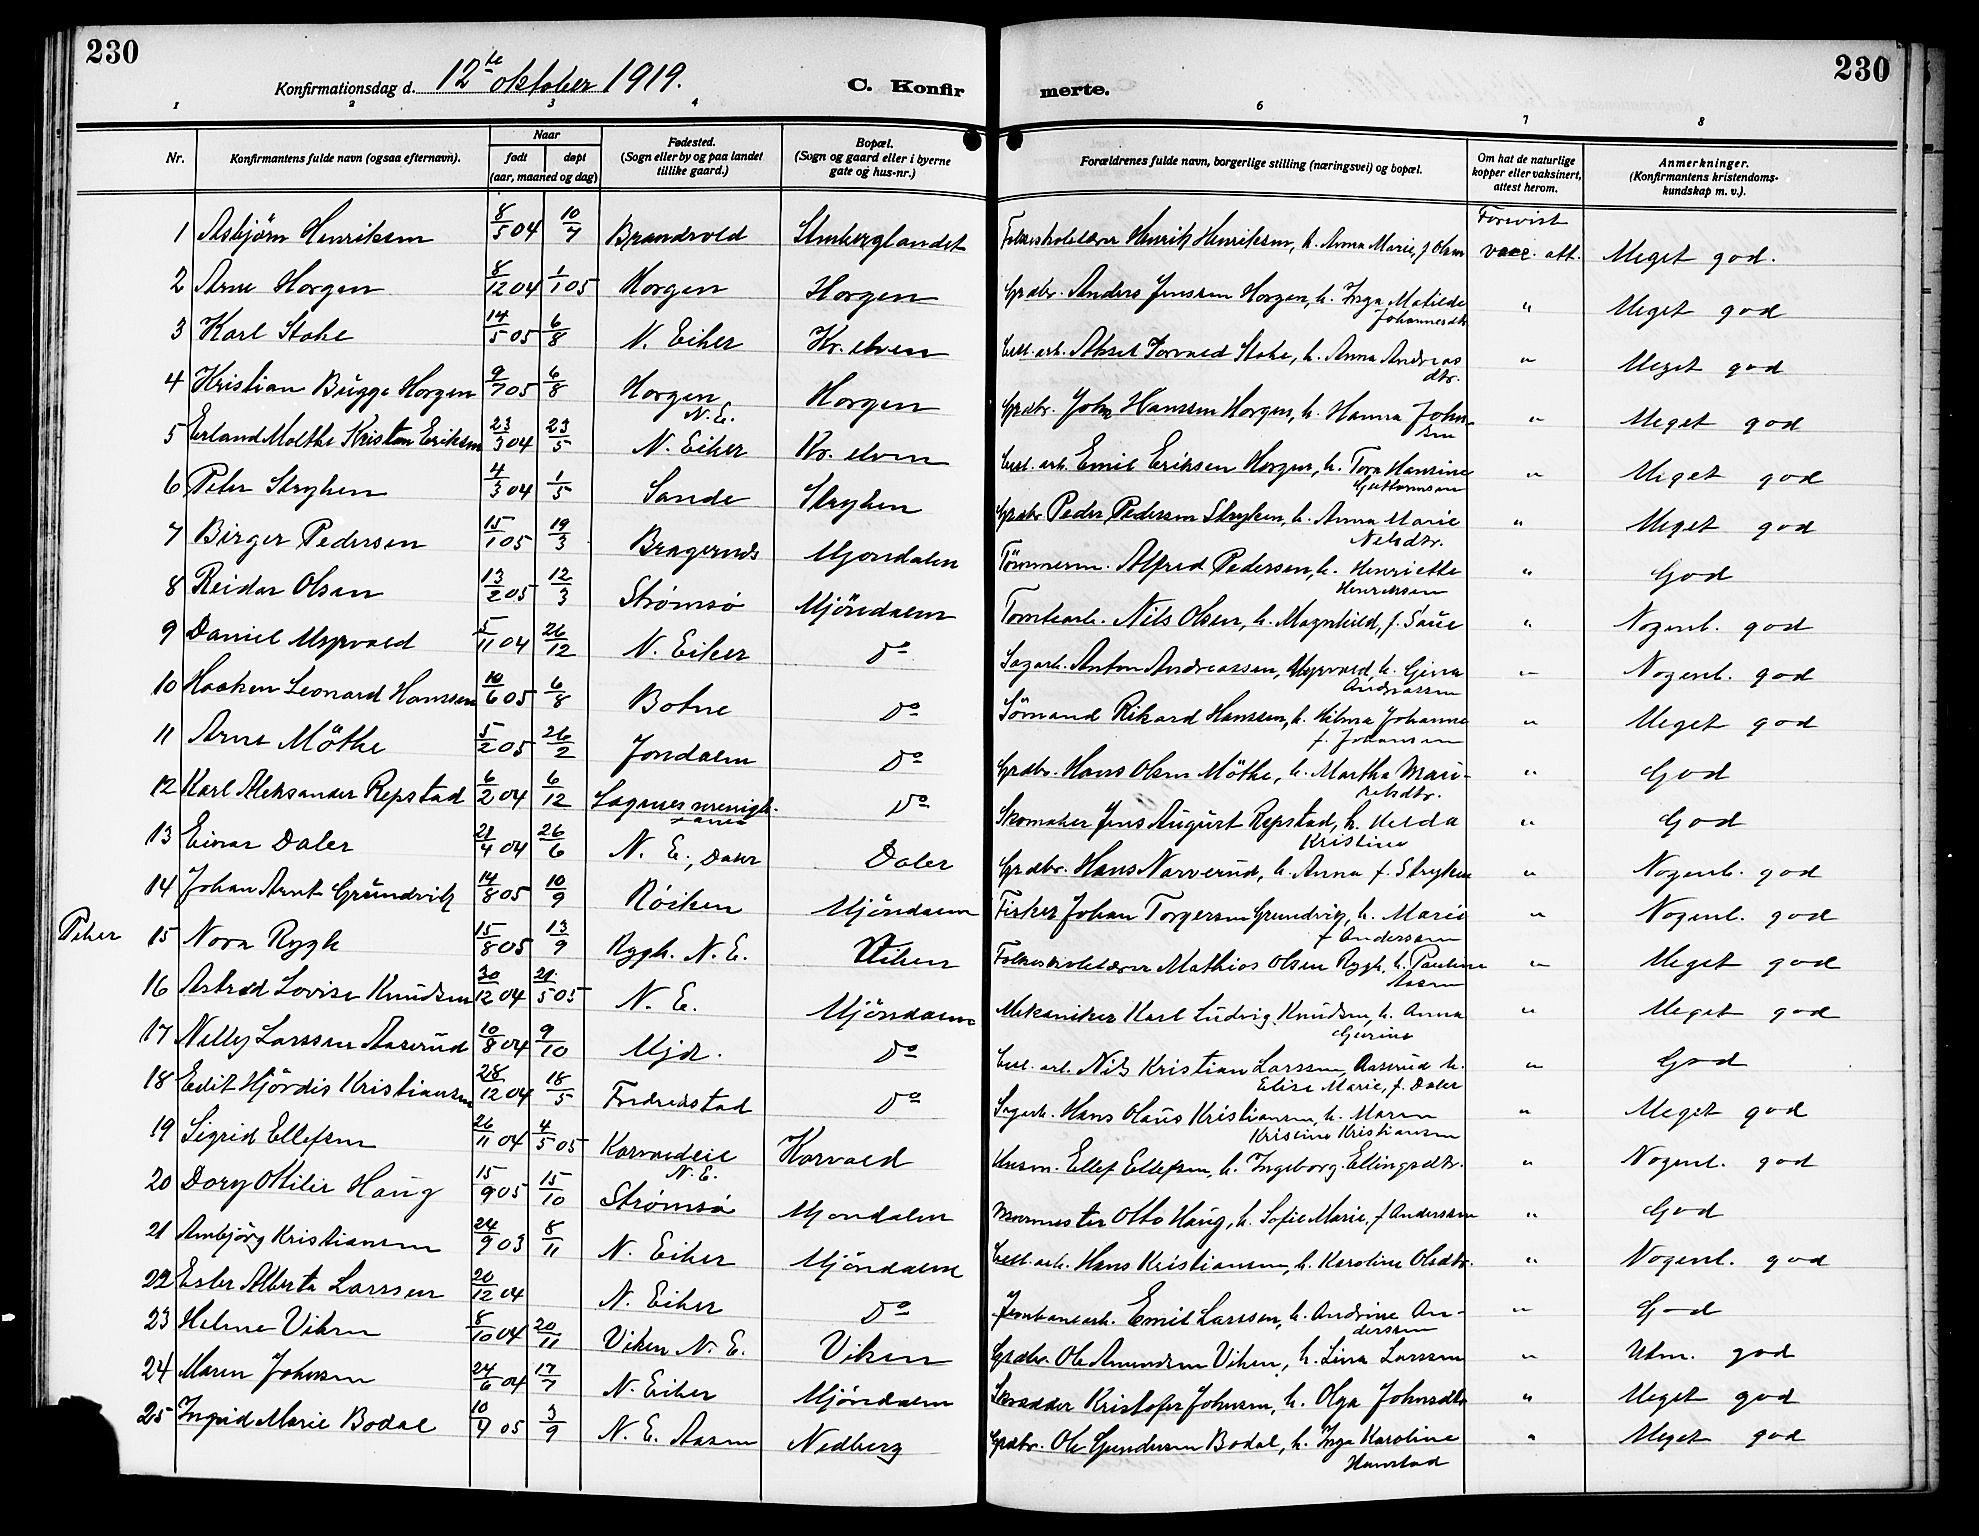 230
Konfirmationsdag d. 12te oktober 1919.
C. Konfirmerte.
230
1 2 3 4 6 7 8
Nr.
Konfirmantens fulde navn (ogsaa efternavn).
Naar
født døpt
(aar, maaned og dag)
Fødested.
(Sogn eller by og paa landet
tillike gaard.)
Bopæl.
(Sogn og gaard eller i byerne
gate og hus-nr.)
Forældrenes fulde navn, borgerlige stilling (næringsvei) og bopæl.
Om hat de naturlige
kopper eller vaksinert,
attest herom.
Anmerkninger.
(Konfirmantens kristendoms-
kundskap m. v.).
Forevist
1 Asbjörn Henriksen 8/5 04 10/7 Brandvold Stenberglandet Folkeskolelærer Henrik Henriksen, h. Anna Marie, f Olsen vacc. att. Meget god.
2 Arne Horgen 8/12 04 1/1 05 Horgen Horgen Grdbr. Anders Jenssen Horgen, h. Inga Matilde " Meget god
Johannesdtr
3 Karl Stake 14/5 05 6/8 N. Eiker Kr. elven Cell. arb. Aksel Torvald Stake, h. Anna Andreas " Meget god
dtr.
4 Kristian Bugge Horgen 9/7 05 6/8 Horgen Horgen Grdbr. John Hansen Horgen, h. Hanna John- " Meget god
N. E. sen
5 Erland Molthe Kristian Eriksen 23/3 04 23/5 N. Eiker Kr. elven Cell. arb. Emil Eriksen Horgen, h. Tora Hansine " Meget god
Guttormsen
6 Peter Stryken 4/3 04 1/5 Sande Stryken Grdbr Peder Pedersen Stryken, h. Anna Marie " Meget god
Nelsdtr.
7 Birger Pedersen 15/1 05 19/3 Bragernes Mjondalen Tömmerm. Alfred Pedersen, h. Henriette " God
Henriksen
8 Reidar Olsen 13/2 05 12/3 Strømsø Mjöndalen Tomtearb. Nils Olsen, h. Magnhild, f. Saue " Nogenl. god
9 Daniel Myrvold 5/11 04 26/12 N. Eiker Do Sagarb. Anton Andreassen, Myrvold, h. Gina " Nogenl. god
Andreassen
10 Haaken Leonard Hanssen 10/6 05 6/8 Botne Do Sömand Rikard Hanssen, h. Hilma Johanne " Meget god
f. Johansen
11 Arne Möthe 5/2 05 26/2 Jondalen Do Grdbr. Hans Olsen Möthe, h. Martha Mari- " God
nelsdtr.
12 Karl Aleksander Repstad 6/2 04 6/12 Do Skomaker Jens August Repstad, h. Helda " God
Kristine
13 Einar Daler 21/4 04 26/6 N. E., Daler Daler Grdbr. Hans Narverud, h. Anna f. Stryken " Nogenl. god
14 Johan Arnt Grundvik 14/8 05 10/9 Röiken Mjöndalen Fisker Johan Torgersen Grundvig, h. Marie " Nogenl. god
f Andersen
15 Nora Rygh 15/8 05 13/9 Rygh. N. E. Viken Folkeskolelærer Mathias Olsen Rygh, h. Pauline " Meget god
Aasen
16 Astrid Lovise Knudsen 30/12 04 21/5 05 N. E. Mjöndalen Mekaniker Karl Ludvig Knudsen, h. Anna " Meget god
Gurine
17 Nelly Larssen Aaserud 10/8 04 9/10 Mjd. Do Cell. arb. Nils Kristian Larssen, Aaserud h. " God
Elise Marie, f. Daler
18 Edit Hjördis Kristiansen 28/12 04 18/5 Fredrikstad Do Sagarb. Hans Olaus Kristiansen, h. Maren " Meget god
Kristine Kristiansen
19 Sigrid Ellefsen 26/11 04 4/5 05 Korvaldeie Korvald Husm. Ellef Ellefsen, h. Ingeborg Ellingsdtr. " Nogenl. god
N. E.
20 Dory Ottilie Haug 15/9 05 15/10 Strømsø Mjondalen Murmester Otto Haug, h. Sofie Marie, f Andersen " God
21 Ambjörg Kristiansen 24/9 03 8/11 N. Eiker Mjöndalen Cell. arb. Hans Kristiansen, h. Karoline Olsdtr. " Nogenl. god
22 Ester Alberta Larssen 20/12 04 N. Eiker Do Jernbanearb. Emil Larssen, h. Andrine An- " God
derssen
23 Helene Viken 8/10 04 20/11 Viken N. E. Viken Grdbr. Ole Amundsen Viken, h. Lina Larssen " Utm. god
24 Maren Johnsen 24/6 04 17/7 N. Eiker Mjöndalen Skrædder Kristofer Johnsen, h. Olga Johnsdtr " Meget god
25 Ingrid Marie Bodal 10/4 05 3/9 N. E. Aasen Nedberg Grdbr. Ole Gundersen Bodal, h. Inga Karoline " Meget god
Hemstad